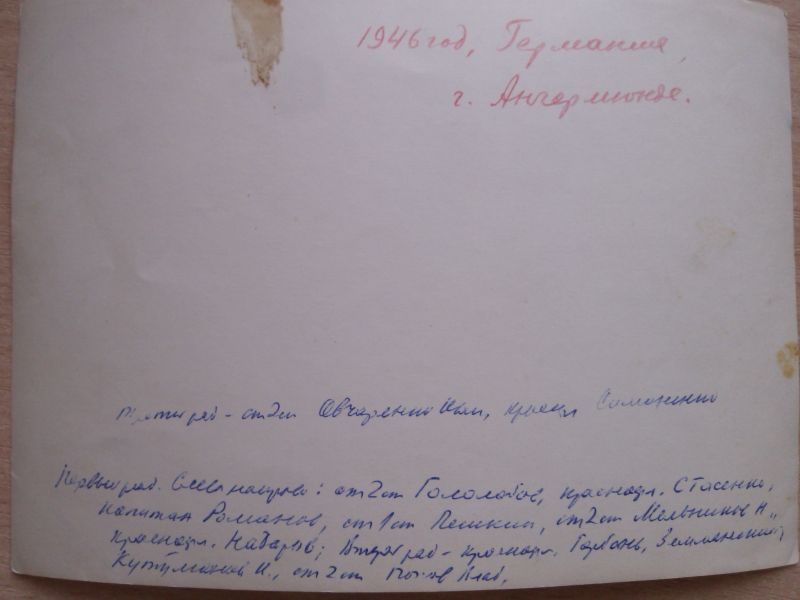 1946 год, Германия,
г. Ангермюнде.
Третий ряд - ст2ст Овчаренко Илл, краснфл Симоненко
Первый ряд. Слева направо: ст2ст Гололобов, краснофл. Стасенко,
Капитан Романов, ст1ст Пешкин, ст2ст Мельников Н.,
краснофл. Набатов; Второй ряд - краснофл. Горбань, Землянский,
И., ст2ст Попов